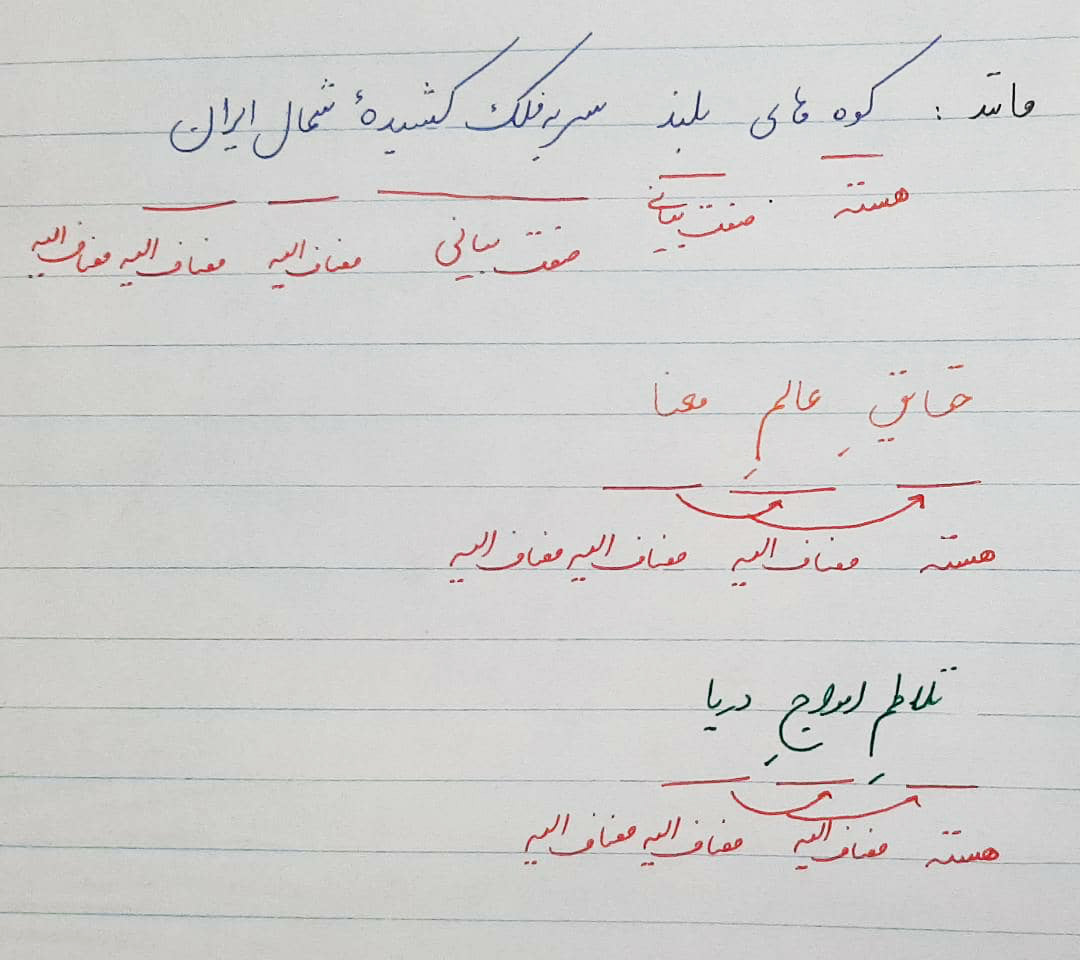 مانند : کوه های بلند سر به فلک کشیدهٔ شمال ایران
هسته صفت بیانی صفت بیانی مضاف الیه مضاف الیه مضاف الیه
حقایقِ عالمِ معنا
هسته مضاف الیه مضاف الیه مضاف الیه
تلاطمِ امواجِ دریا
هسته مضاف الیه مضاف الیه مضاف الیه